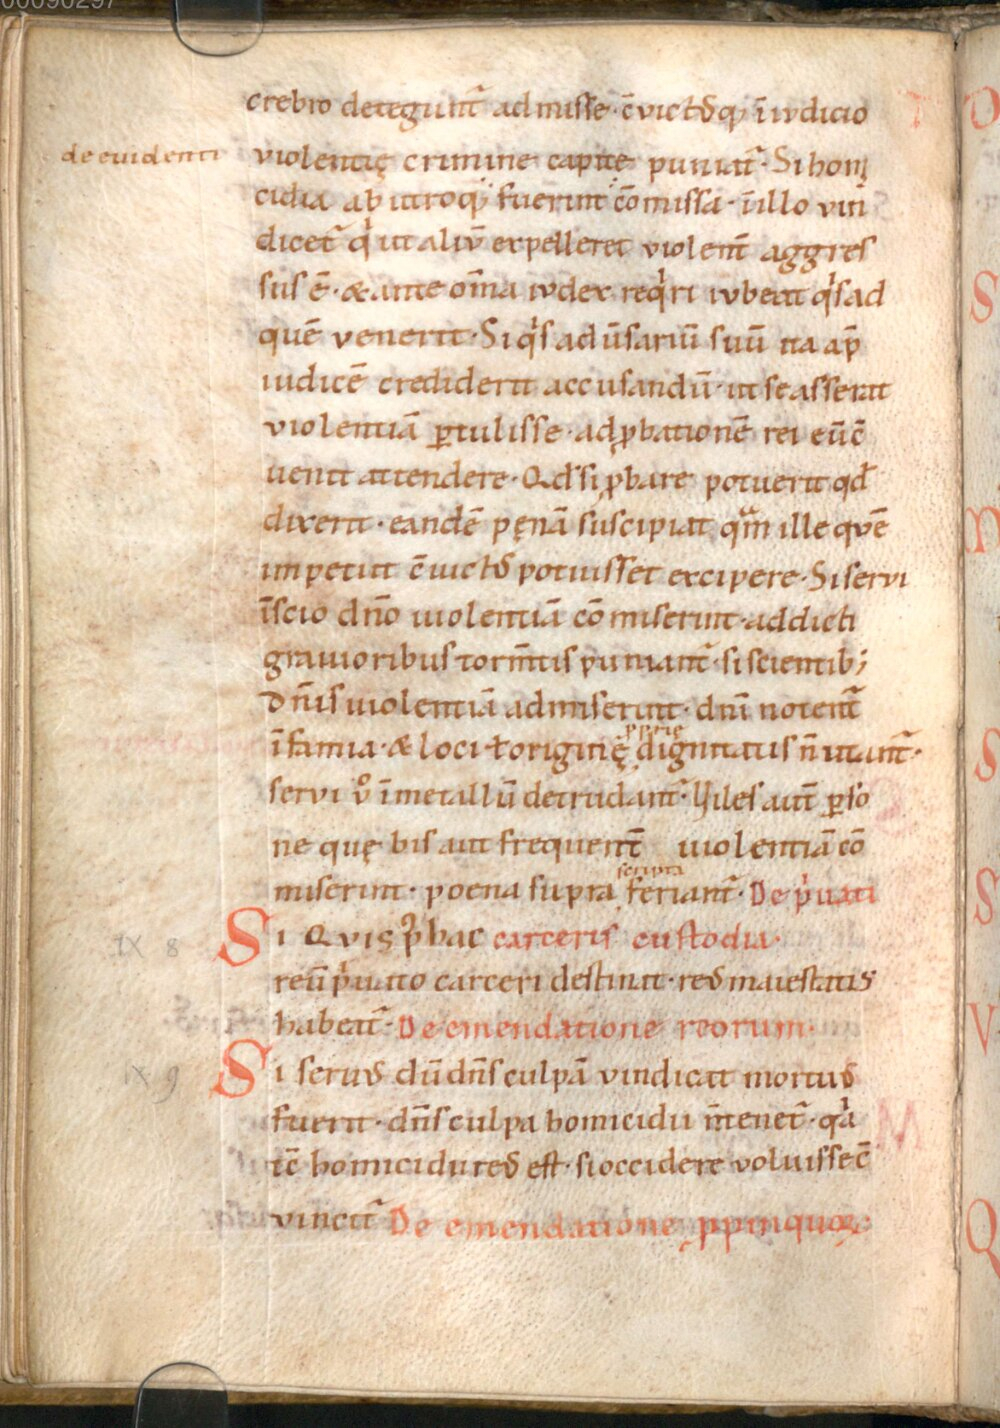 00090297
crebro detegunt̃ admisse · c̄vict᷒q; īiudicio
de euidenti
violentię crimine capite puniat̃ · Si homi
cidia ab utroq; fuerint cōmissa · īillo vin
dicet̃ q̇ ut aliū expelleret violent̃ aggres
sus ē · & ante om̄a iudex req̇ri iubeat q̇s ad
quē venerit · Si q̇s adūsariū suū ita ap̄
iudicē crediderit accusandū · ut se asserat
violentiā ꝑtulisse · ad ꝓbationē rei eūc̄
uenit attendere · Qđ si ꝓbare potuerit qđ
dixerit · eandē pęnā suscipiat qm̃ ille quē
impetit c̄uict᷒ potuisset excipere · Si servi
īscio dn̄o uiolentiā cōmiserint · addicti
grauioribus torm̄tis puniant̃ · si scientib;
dn̄is uiolentiā admiserunt · dn̄i notent̃
īfamia · & loci ł originis ꝓprię dignitatis n̄ utant̃ ·
servi v̊ īmetallū detrudant̃ · Viles aut̄ ꝑso
ne quę bis aut frequent̃ uiolentiā cō
miserint · poena supra scripta feriant̃ · De p̍uati
IX 8
Si Qvis p̍ hac carceris custodia ·
reū p̍uato carceri destinat · re᷒ maiestatis
habeat̃ · De emendatione reorum ·
IX 9
Si seru᷒ dū dn̄s culpā vindicat mortu᷒
fuerit · dn̄s culpa homicidii n̄ tenet̃ · q̇a
tc̄ homicidii re᷒ est · si occidere voluisse c̄
vincit̃ De emendatione ꝓpinquoꝝ ·